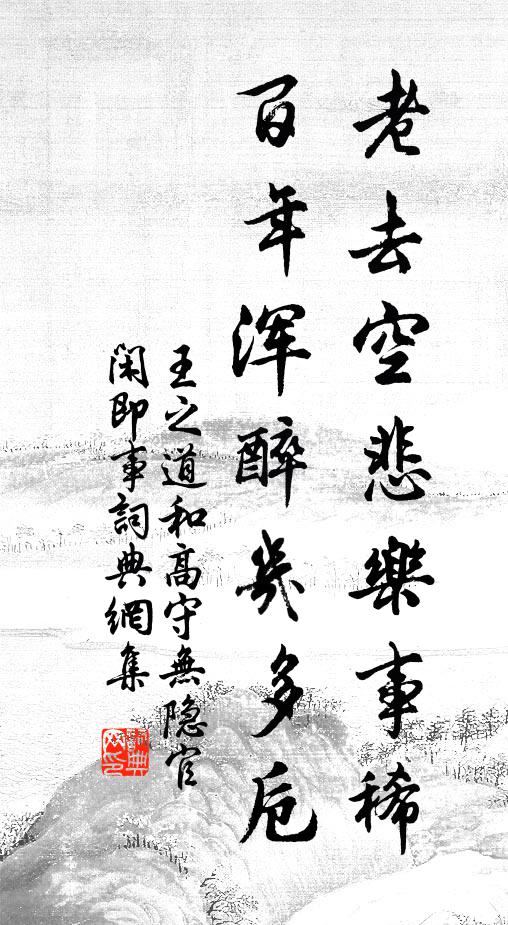 老去空悲樂事稀
百年渾醉幾多卮
王之道和高守無隐官
閑即事詞典網集
詞典網印